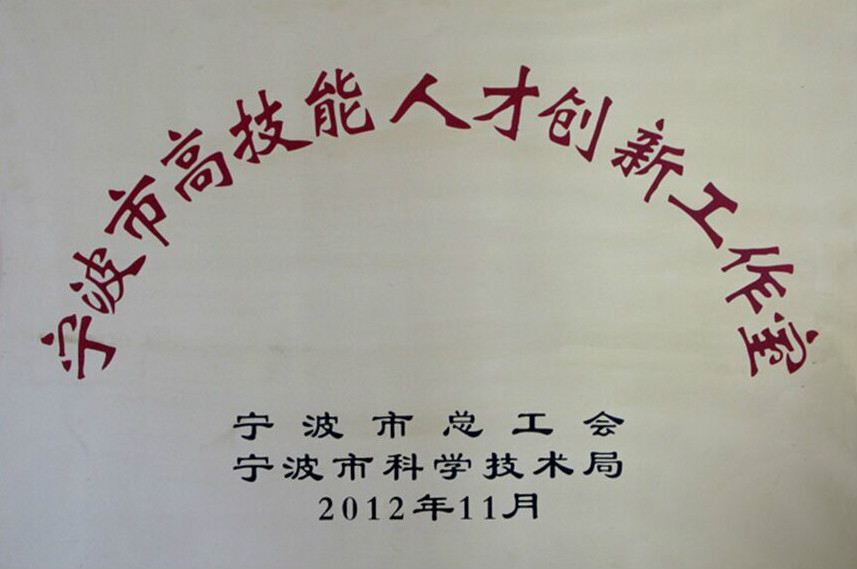 宁波市高技能人才创新工作室
宁波市总工会
宁波市科学技术局
2012年11月